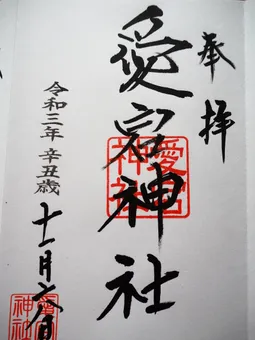 奉拝
愛宕神社
愛宕神社
令和三年 辛丑歳
十一月六日
愛宕神社